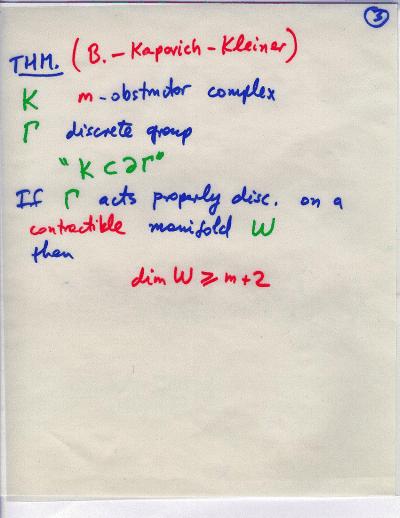 3
THM. (B. - Kapovich - Kleiner)
K m-obstructor complex
Γ discrete group
"K ⊂ ∂Γ"
If Γ acts properly disc. on a
contractible manifold W
then
dim W ⩾ m+2